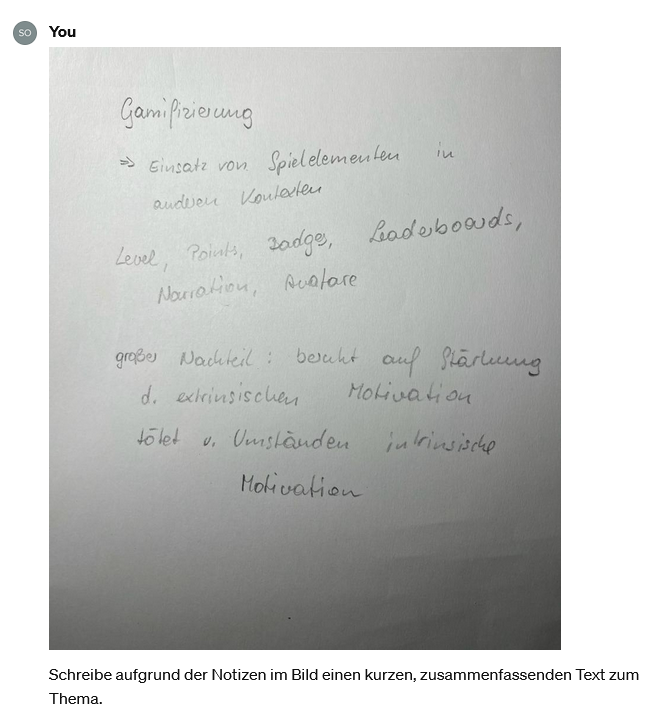 SO You
Gamifizierung
⇒ Einsatz von Spielelementen in
anderen Kontexten
Level, Points, Badges, Leaderboards,
Narration, Avatare
großer Nachteil: beruht auf Stärkung
d. extrinsischen Motivation
tötet u. Umständen intrinsische
Motivation
Schreibe aufgrund der Notizen im Bild einen kurzen, zusammenfassenden Text zum
Thema.